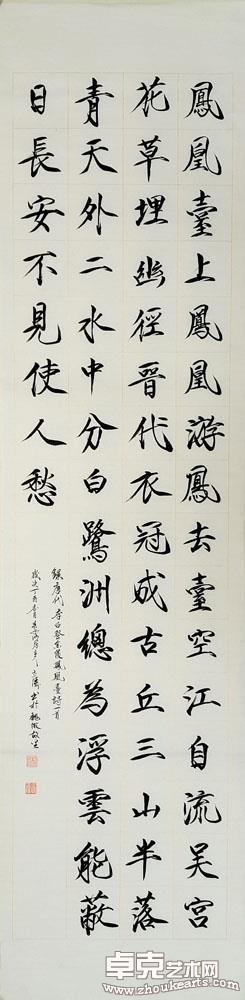 鳳凰臺上鳳凰游鳳去臺空江自流吴宫
花草埋幽徑晉代衣冠成古丘三山半落
青天外二水中分白鷺洲總為浮雲能蔽
日長安不見使人愁
錄唐代李白登金陵鳳凰臺詩一首
歲次丁酉
卓克艺术网
www.zhoukearts.com